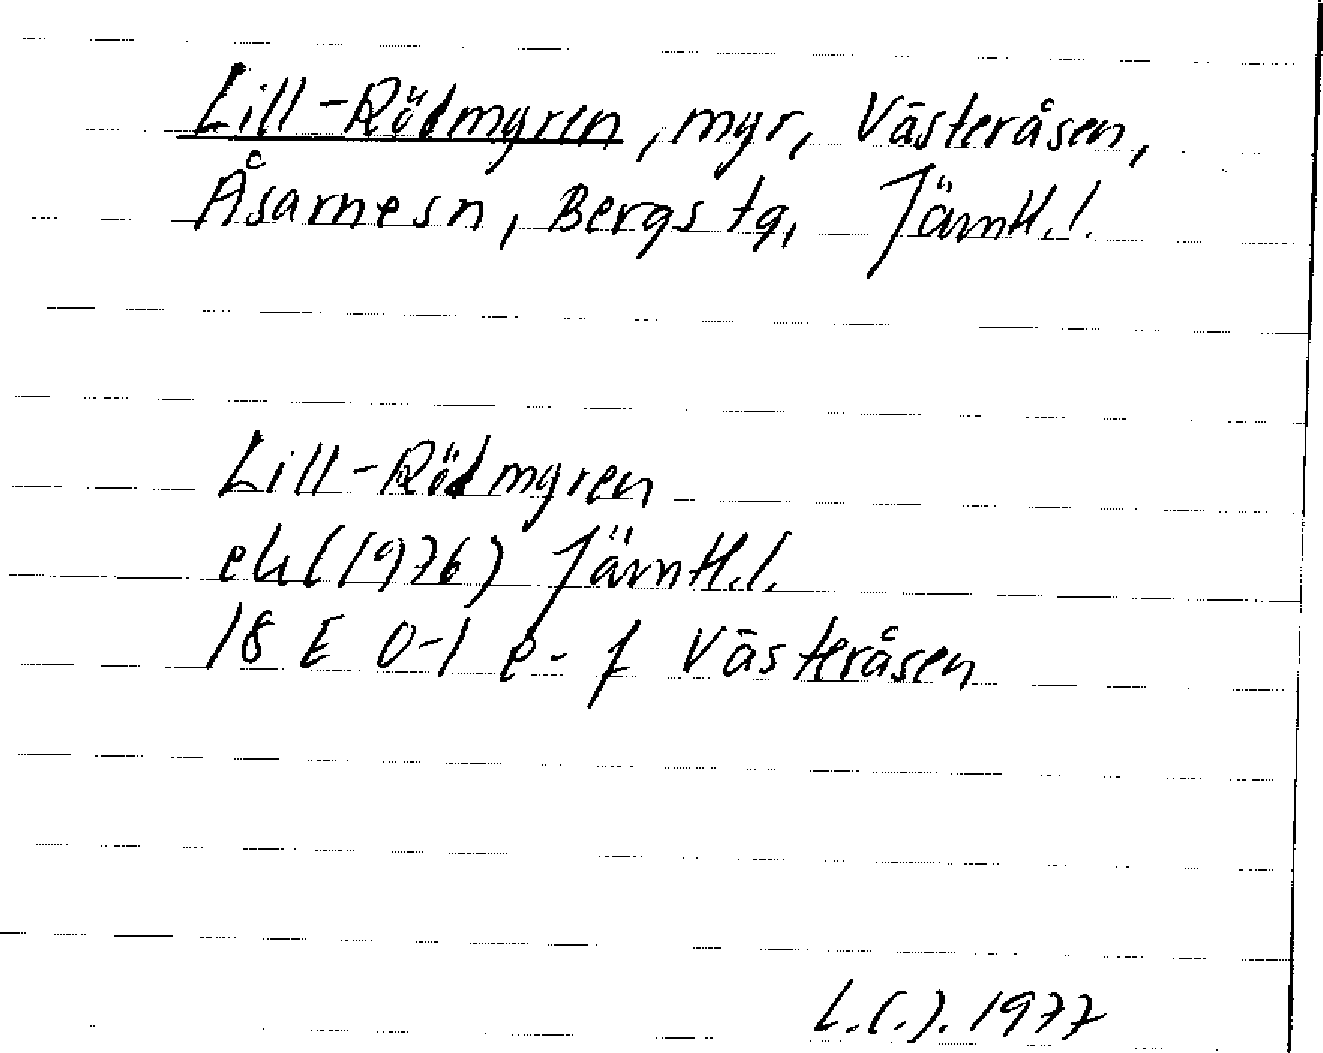 Lill-Rödmyren, myr, Västeråsen,
Åsarnesn, Bergs tg, Jämtl.l.
Lill-Rödmyren
ek(1976) Jämtl.l.
18 E 0-1 e-f Västeråsen
L.(.). 1977